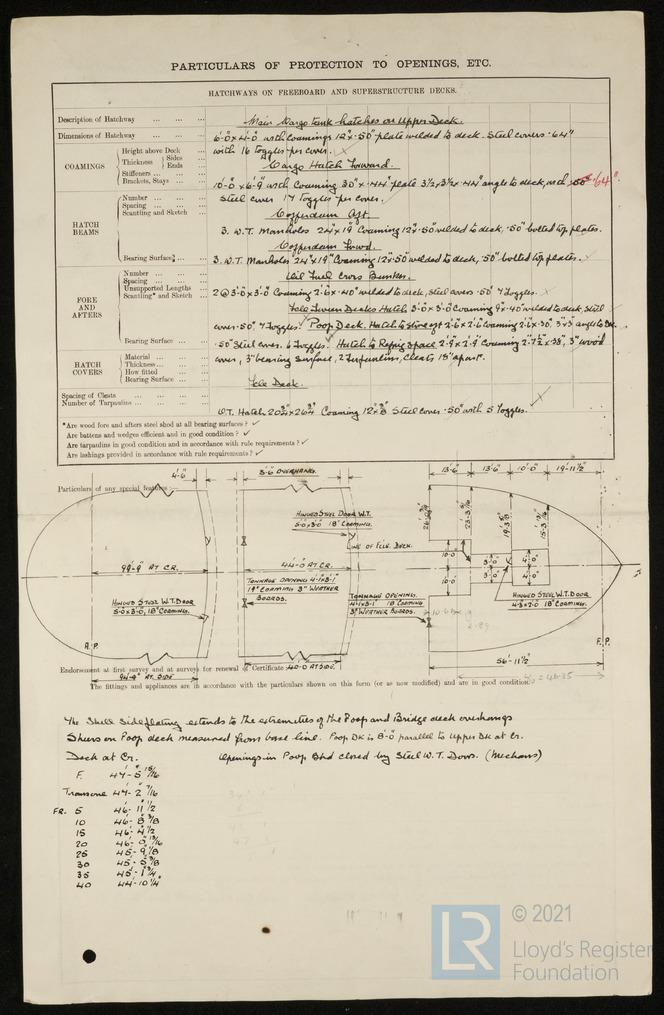 PARTICULARS OF PROTECTION TO OPENINGS, ETC.
HATCHWAYS ON FREEBOARD AND SUPERSTRUCTURE DECKS.
Description of Hatchway ... ... ... Main Cargo tank hatches on Upper Deck.
Dimensions of Hatchway ... ... 6'-0" x 4'-0" with Coamings 12" x .50" plate welded to deck. Steel covers .64"
COAMINGS
Height above Deck ... with 16 Toggles per cover.
Thickness { Sides ...
Ends ...
Cargo Hatch Forward.
Stiffeners ... ...
Brackets, Stays ... ... 10'-0" x 6'-9" with Coaming 30" x .44" plate 3½ x 3½ x .44" angle to deck, .50" .64".
HATCH BEAMS
Number ... ... ... Steel cover 17 Toggles per cover.
Spacing ... ... ...
Scantling and Sketch ... Cofferdam Aft.
3. W.T. Manholes 24" x 19" Coaming 12" x .50 welded to deck, .50" bolted top plates.
Cofferdam Forwd.
Bearing Surface ... ... 3. W.T. Manholes 24" x 19" Coaming 12" x .50" welded to deck, .50" bolted top plates.
FORE AND AFTERS
Number ... ... ... Oil Fuel Cross Bunker.
Spacing ... ... ...
Unsupported Lengths
Scantling* and Sketch ... 2 @ 3'-0" x 3'-0" Coaming 2'-6" x .40" welded to deck, steel covers .50" 7 Toggles.
Fcle Tween Decks Hatch 3'-0" x 3'-0" Coaming 9" x .40" welded to deck, Steel
cover .50" 7 Toggles. Poop Deck. Hatch to Stores 2'-6" x 2'-6" Coaming 2'-6" x .30", 3" x 3" angle to Dk.
Bearing Surface ... ... .50" Steel cover. 6 Toggles. Hatch to Refrig space 2'-9" x 2'-9" Coaming 2'-7½" x .38", 3" wood
HATCH COVERS
Material ... ... ... cover, 3" bearing surface, 2 Tarpaulins, Cleats 18" apart.
Thickness... ... ...
How fitted ... ...
Bearing Surface ... ... Fcle Deck.
Spacing of Cleats ... ...
Number of Tarpaulins ... ... W.T. Hatch 20¾" x 26¾" Coaming 12" x ⅜" Steel cover .50" with 5 Toggles.
*Are wood fore and afters steel shod at all bearing surfaces? ✓
Are battens and wedges efficient and in good condition? ✓
Are tarpaulins in good condition and in accordance with rule requirements? ✓
Are lashings provided in accordance with rule requirements? ✓
4'-6" 3'-6" OVERHANG. 13'-6" 13'-6" 10'-0" 19'-11½"
Particulars of any special features:-
HINGED STEEL DOOR W.T.
5'-0 x 3'-0 18" COAMING.
LINE OF FCLE. DECK.
99'-9" AT CR. 44'-0" AT CR. 10'-0 10'-0 3'-0 3'-0 4'-0 4'-0
TONNAGE OPENING 4'-1 x 3'-1
19" COAMING 3" WEATHER
BOARDS.
HINGED STEEL W.T. DOOR
5'-0 x 3'-0, 18" COAMING.
TONNAGE OPENING.
4'-1 x 3'-1 18" COAMING
3" WEATHER BOARDS.
HINGED STEEL W.T. DOOR
4'-3 x 2'-0 18" COAMING.
A.P. F.P.
Endorsement at first survey and at surveys for renewal of Certificate: 40'-0 AT SIDE. 56'-11½"
94'-9" AT SIDE
The fittings and appliances are in accordance with the particulars shown on this form (or as now modified) and are in good condition.
The Shell Side plating extends to the extremeties of the Poop and Bridge deck overhangs
Sheers on Poop deck measured from base line. Poop DK is 8'-0" parallel to Upper DK at Cr.
Deck at Cr. Openings in Poop Bhd closed by Steel W.T. Doors. (Mechans)
F. 47'-5 15/16
Transome 47'-2 7/16
FR. 5 46'-11 ½
10 46'-8 3/8
15 46'-4 ½
20 46'-0 13/16
25 45'-9 1/8
30 45'-5 3/8
35 45'-1 ¾
40 44'-10 ¼
LR © 2021
Lloyd's Register
Foundation